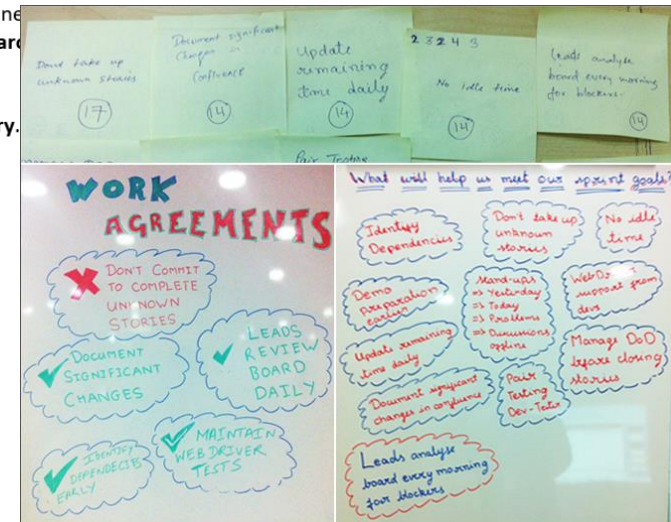 Dont take up
unknown stories
17
Document significant
Changes in
Confluence
14
Update
remaining
time daily
14
2 3 2 4 3
No idle time
14
Leads analyse
board every morning
for blockers.
14
Pair Testing
WORK
AGREEMENTS
DON'T COMMIT
TO COMPLETE
UNKNOWN
STORIES
DOCUMENT
SIGNIFICANT
CHANGES
LEADS
REVIEW
BOARD
DAILY
IDENTIFY
DEPENDECIES
EARLY
MAINTAIN
WEB DRIVER
TESTS
What will help us meet our sprint goals?
Identify
Dependencies
Don't take up
unknown
stories
No idle
time
Demo
preparation
earlier
Stand-ups
=> Yesterday
=> Today
=> Problems
=> Discussions
offline
support from
devs
Update remaining
time daily
Manage DoD
before closing
stories
Document significant
changes in confluence
Pair
Testing
Dev-Tester
Leads analyse
board every morning
for blockers